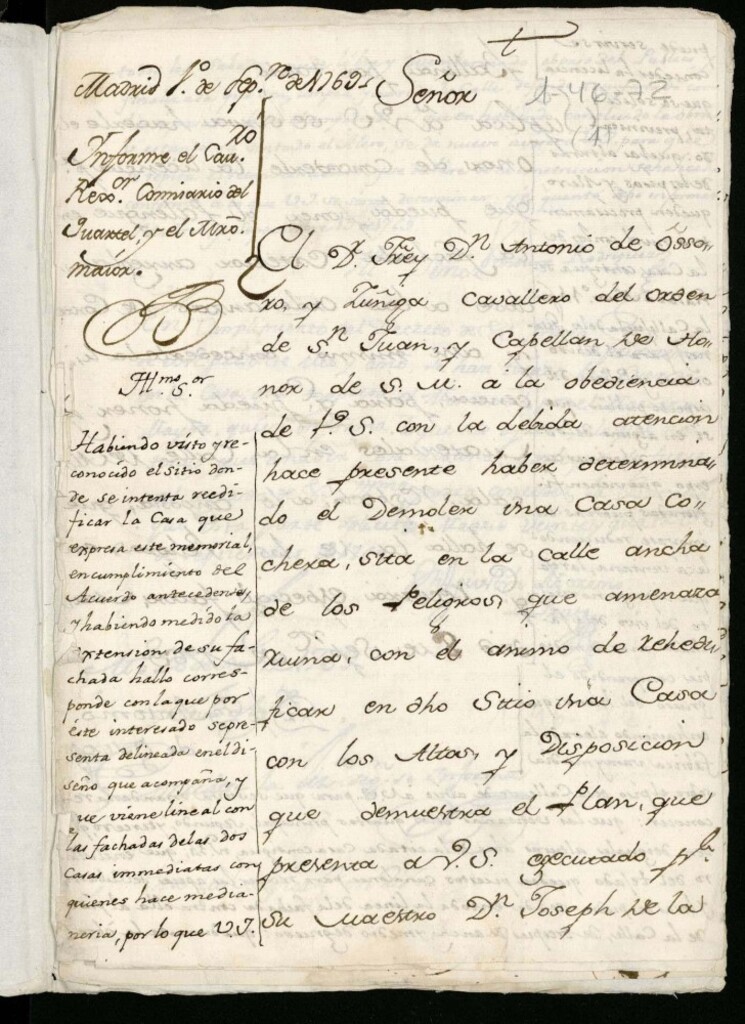 Madrid 1.º de Sep.re de 1769,, Señor
1-46-72
(1)
Informe el Cau.ro
Rexo.or Comisario del
Quartel, y el Mro.
maior.
Yll.mo S.or
Habiendo visto y re-
conocido el sitio don-
de se intenta reedi-
ficar la Casa que
expresa este memorial,
en cumplimiento del
Acuerdo antecedente,
y habiendo medido la
extension de su fa-
chada hallo corres-
ponde con la que por
este interesado se pre-
senta delineada en el di-
seño que acompaña, y
que viene lineal con
las fachadas de las dos
Casas immediatas con
quienes hace media-
neria, por lo que V.I.
El D.r Frey D.n Antonio de Osso-
rio, y Zuñiga Cavallero del orden
de S.n Juan, y Capellan de Ho-
nor de S. M. a la obediencia
de V. S. con la debida atencion
hace presente haber determina-
do el Demoler una Casa Co-
chera, sita en la calle ancha
de los Peligros, que amenaza
ruina, con el animo de rehedi-
ficar en dho Sitio una Casa
con los Altos, y Disposicion
que demuestra el Plan, que
presenta a V. S. executado p.r
su maestro D.n Joseph de la